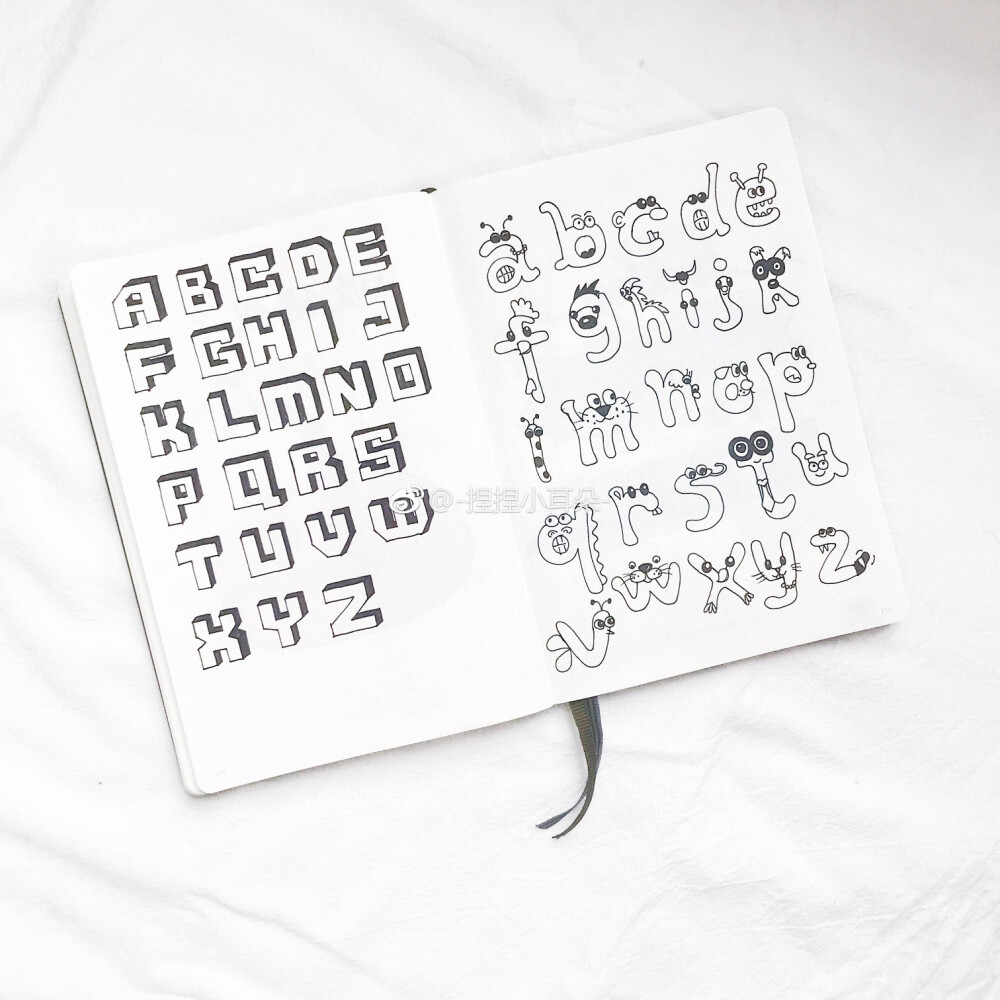 A B C D E
F G H I J
K L M N O
P Q R S
T U V W
X Y Z
a b c d e
f g h i j k
l m n o p
q r s t u
v w x y z
@-捏捏小耳朵-